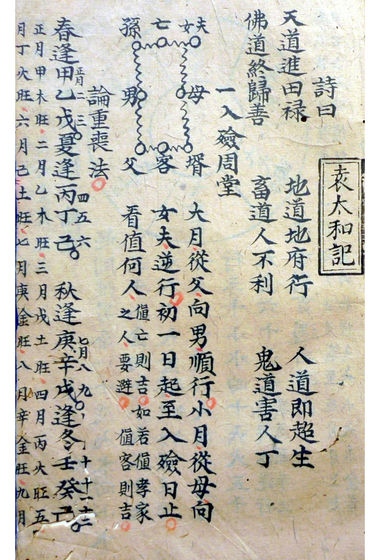 詩曰
袁太和記
天道進田祿 地道地府行 人道即超生
佛道終歸善 畜道人不利 鬼道害人丁
一入殮周堂
夫 母 壻
女
亡 客
孫 男 父
大月從父向男順行小月從母向
女夫逆行初一日起至入殮日止
看值何人 值亡則吉如若值孝家
之人要避 值客則吉
論重喪法
正月二三 四五六 七月八九 十十一十二
春逢甲乙戊夏逢丙丁己 秋逢庚辛戊逢冬壬癸己
正月甲木旺二月乙木旺三月戊土旺四月丙火旺五
月丁火旺六月己土旺七月庚金旺八月辛金旺九月